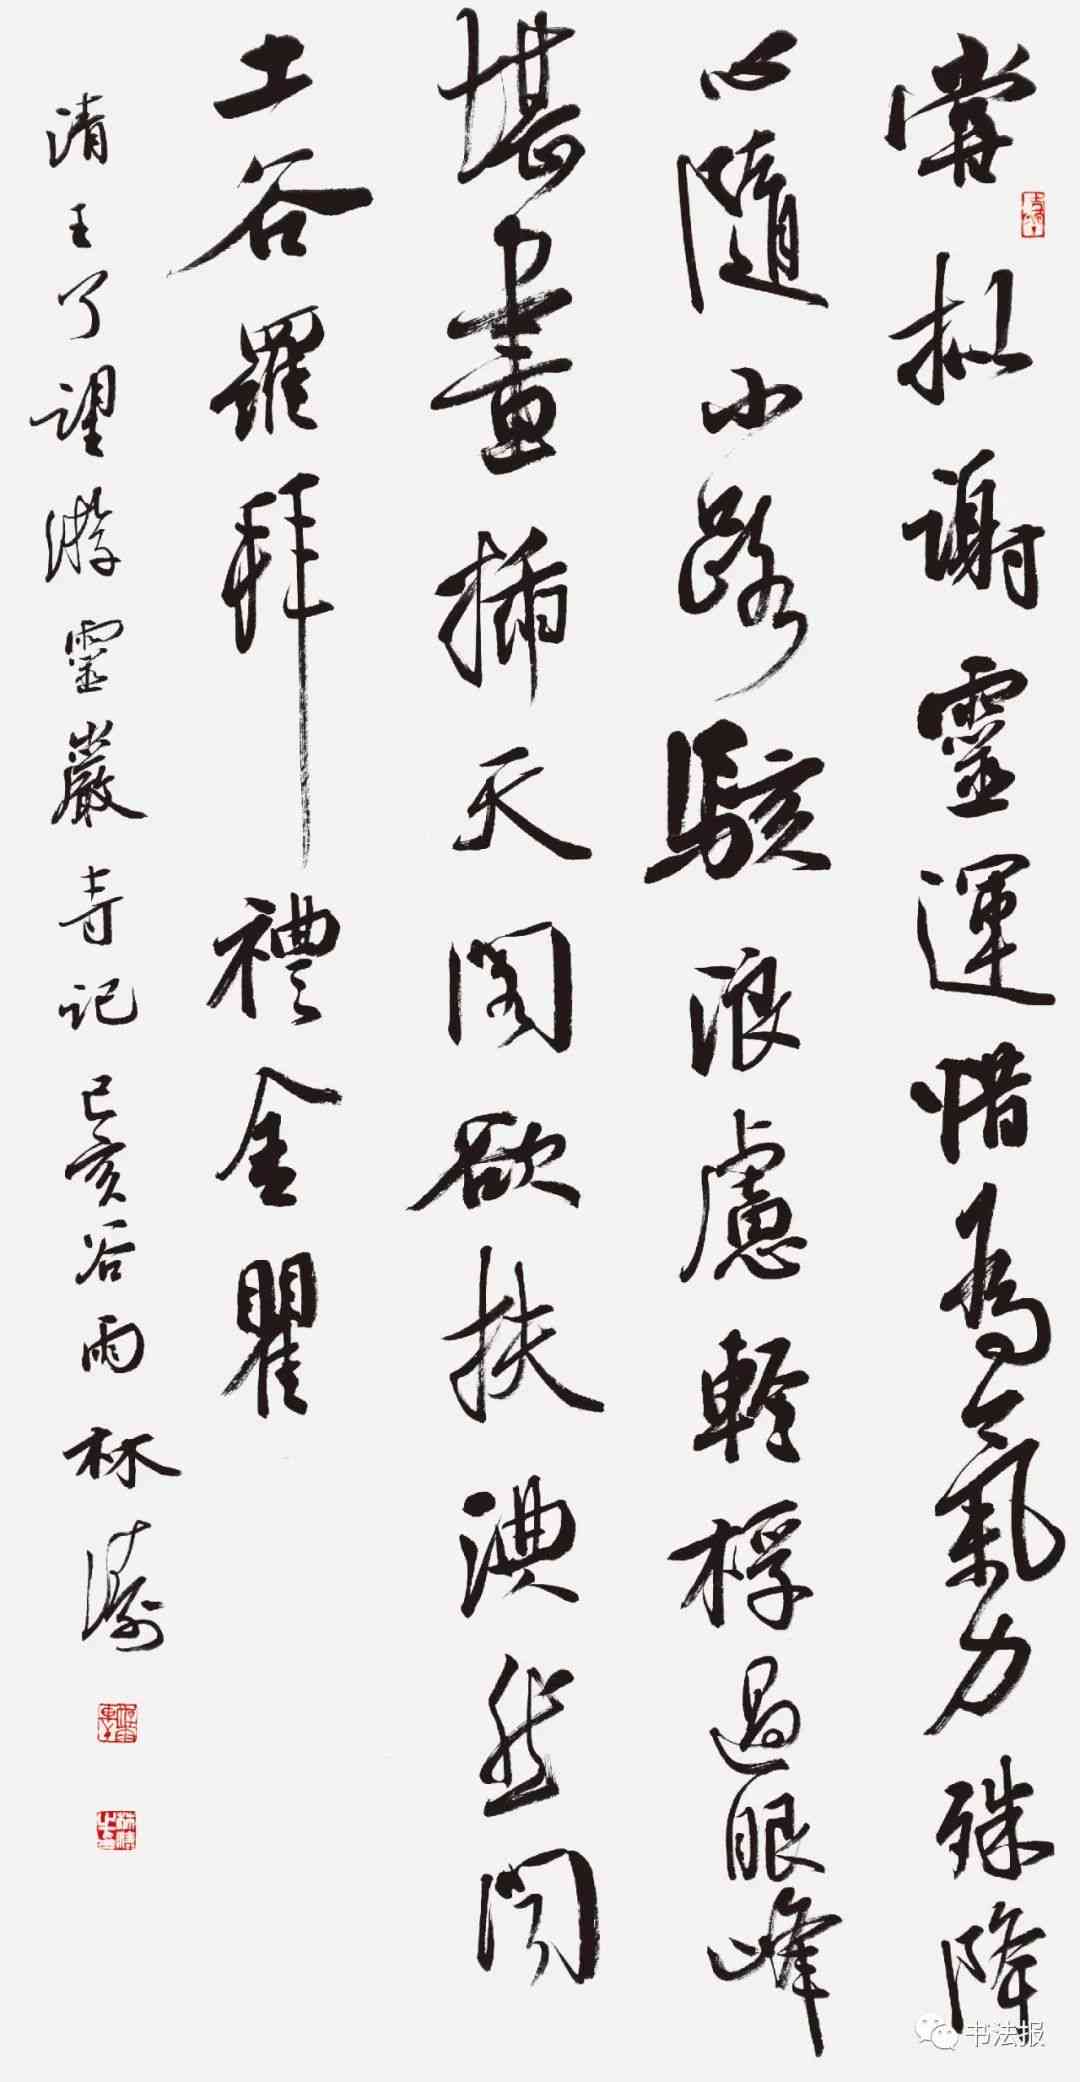 常拟謝靈運惜為氣力殊降
心隨小路駭浪慮輕桴過眼峰
堪畫插天閣欲扶湙然聞
土谷羅拜禮金瞿
清王了望游靈巖寺記己亥谷雨林濤
书法报